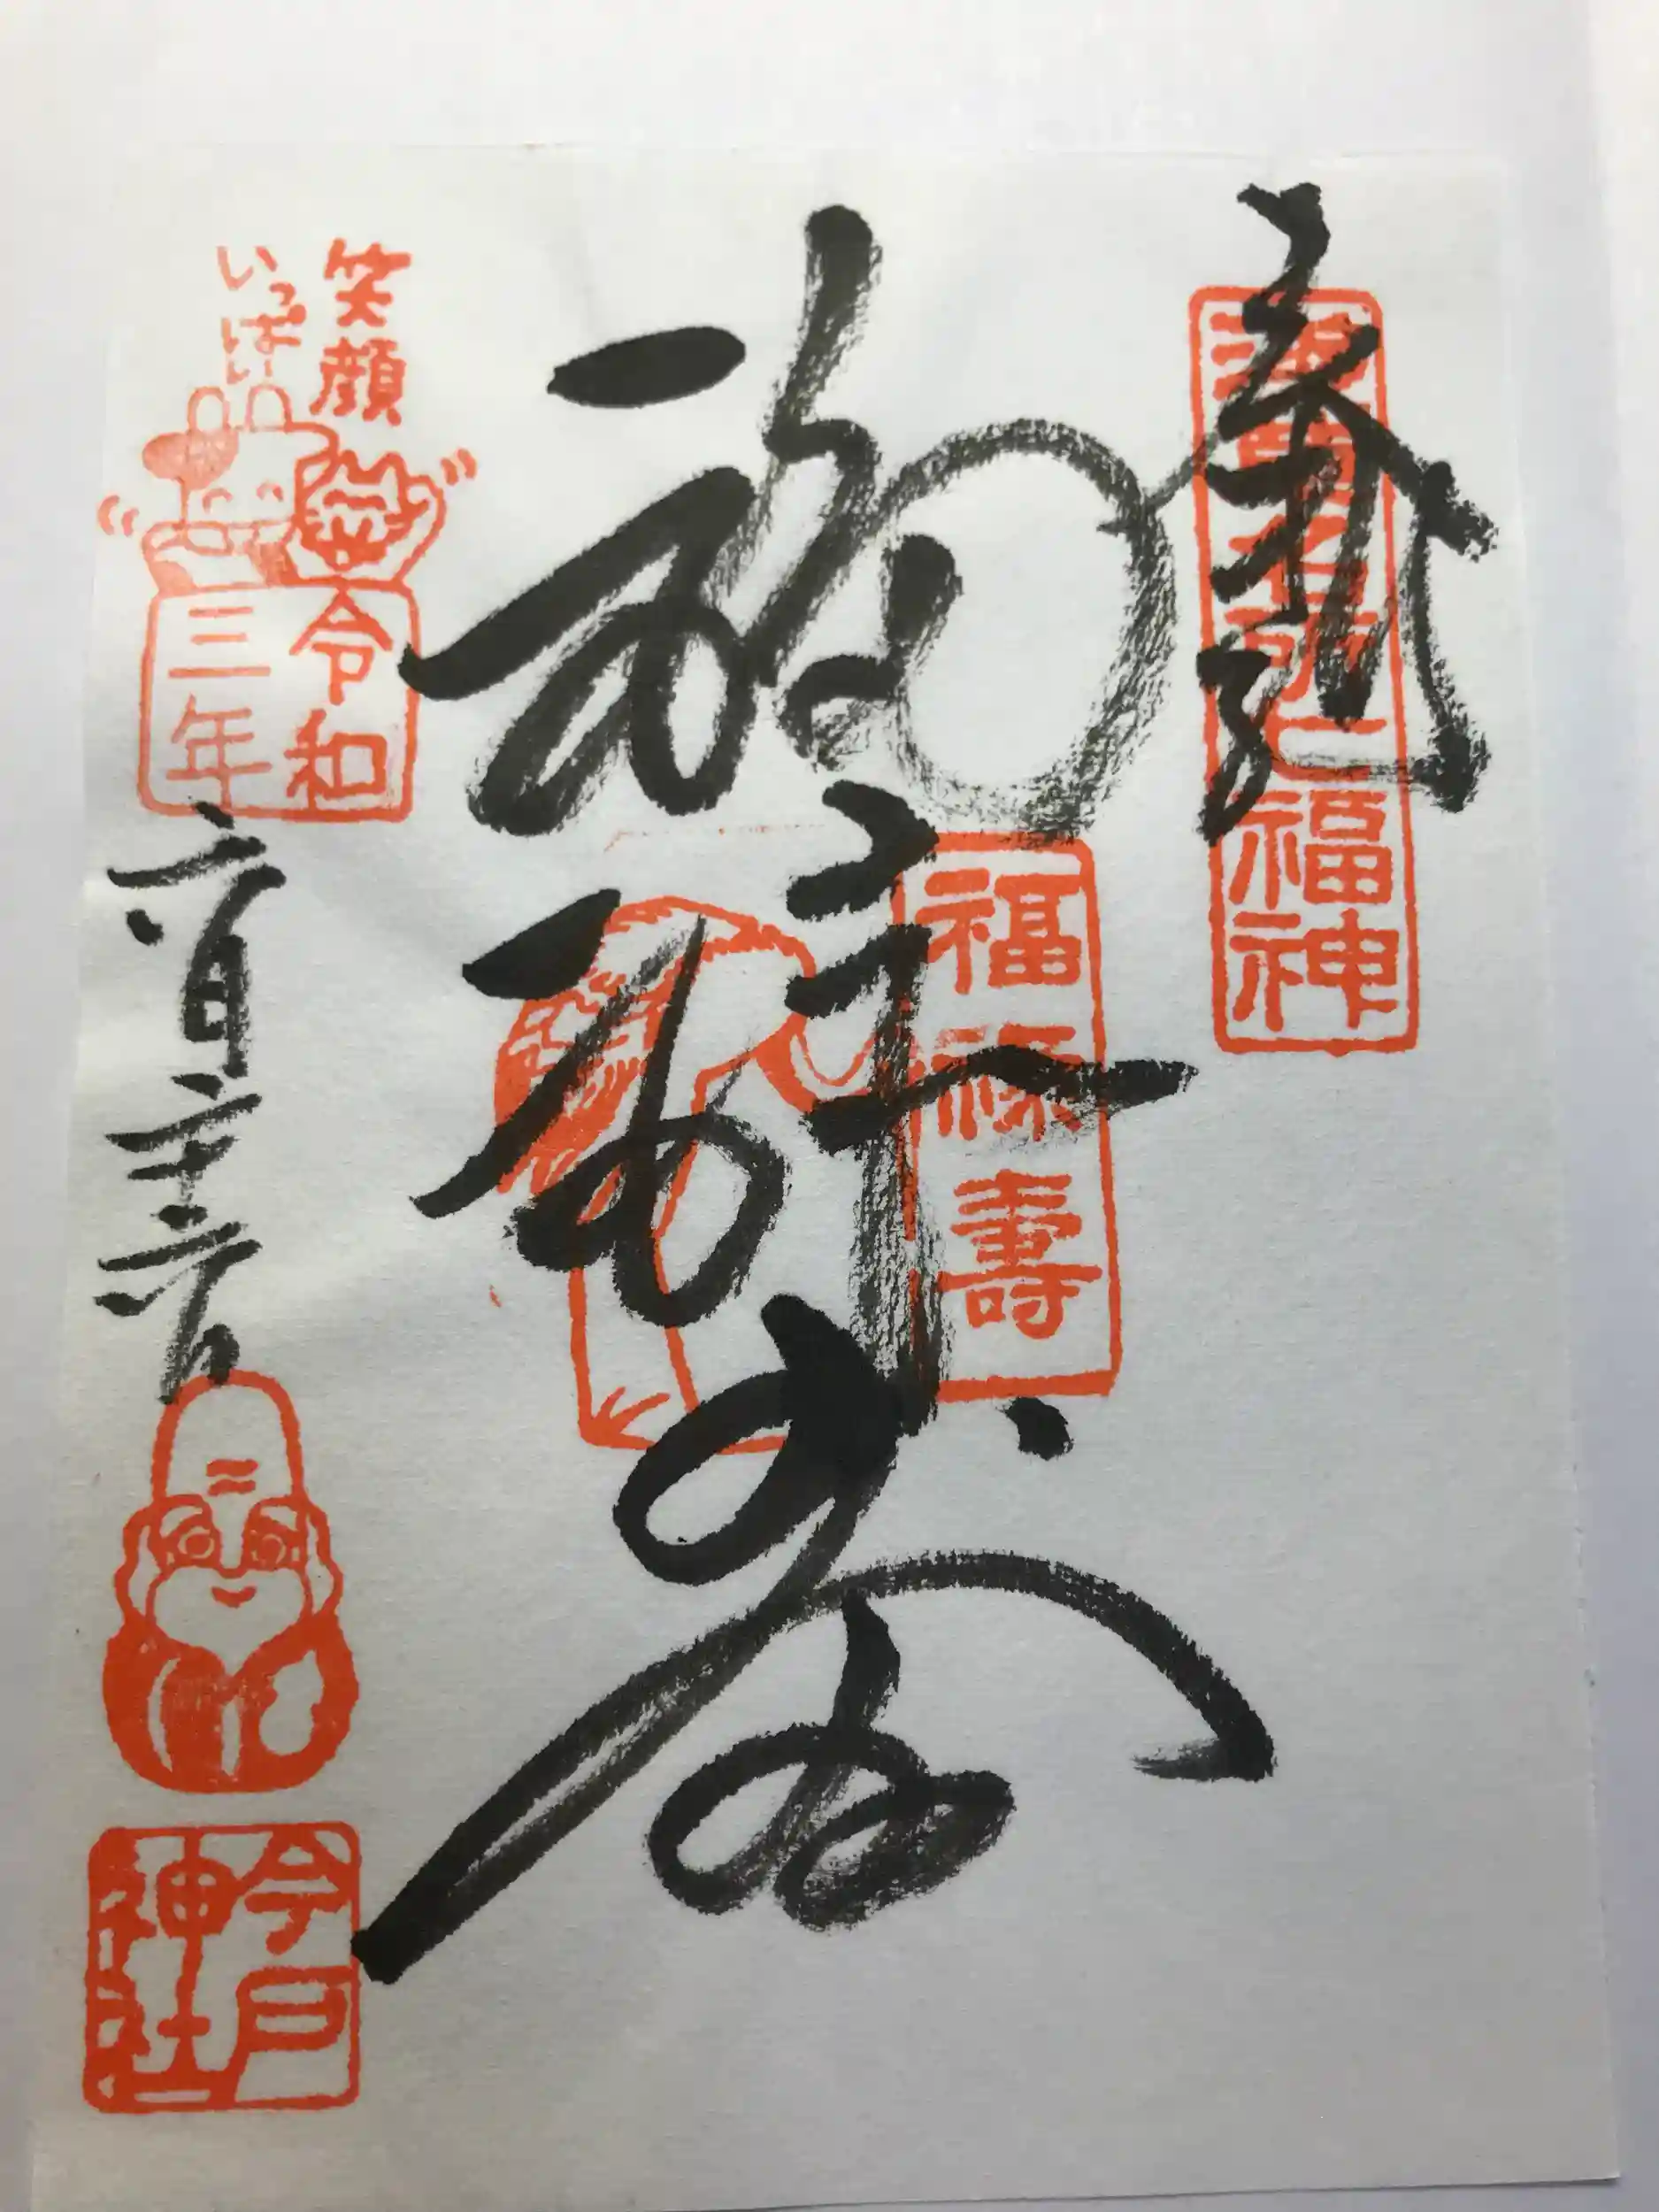 奉拝
浅草名所七福神
福禄寿
福禄壽
笑顔
いっぱい
令和
三年
六月二十六日
今戸
神社